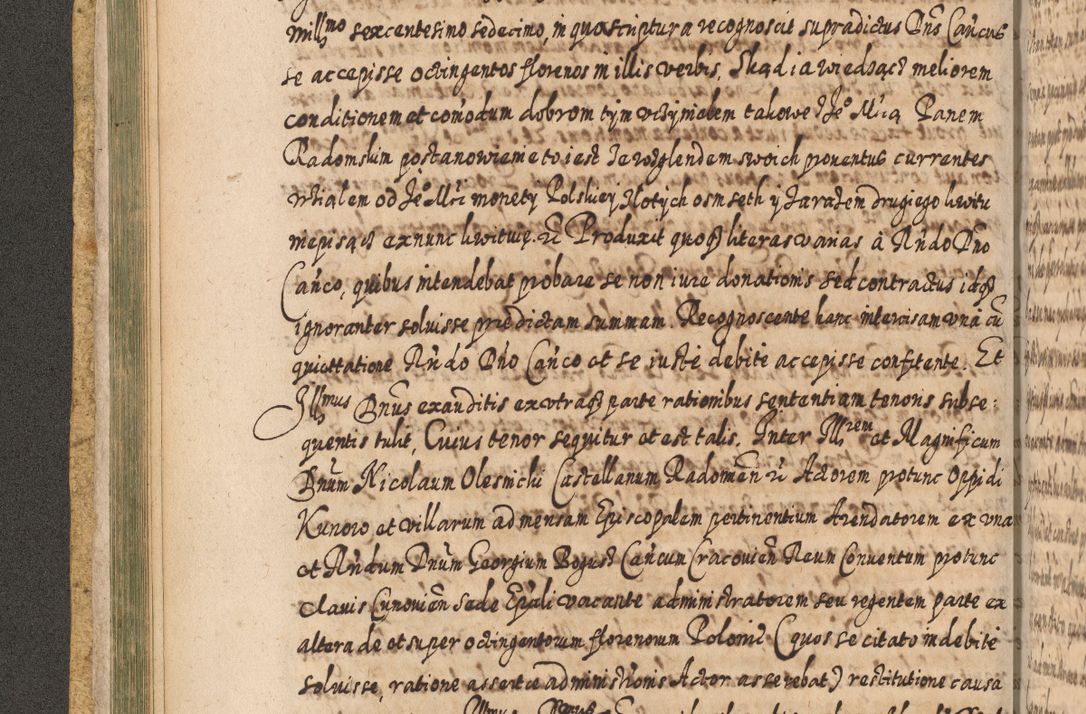 mill[mo] sexcentesimo sedecimo, in qua scriptura recognoscit supradictus Dns Cancus
se accepisse octingentos florenos in illis verbis. Skąd ia wiedząc meliorem
conditionem et comodum dobrom tym uczyniłem takowe z Je° Mcią Panem
Radomskim postanowienie to iest ze względem swoich prouentus currentes
wziąłem od Je° Mci monety Polskiey złotych osmseth y zarazem drugiego kwitu
niepisąc ex nunc kwituię. Produxit quoq literas varias â Rndo Dno
Canco, quibus intendebat probare se non iure donationis sed contractus idq
ignoranter soluisse prædictam summam. Recognoscente hanc intercisam una cu
quiettatione Rndo Dno Canco et se iustè debitè accepisse confitente. Et
Illmus Dnus exauditis ex utraq parte rationibus sententiam tenoris subse:
quentis tulit, Cuius tenor sequitur et est talis. Inter Illrem et Magnificum
Dnum Nicolaum Olesnicki Castellanum Radomien Actorem protunc Oppidi
Kunow et villarum ad mensam Episcopalem pertinentium Arendatorem ex una
et Rndum Dnum Georgium Bogusz Cancum Cracovien Reum Conuentum protunc
clavis Cunovien Sede Epali vacante administratorem seu regentem parte ex
altera de et super octingentorum florenorum Poloniæ (quos se citato indebitè
soluisse, ratione assertæ administionis Actor asserebat) restitutione causa